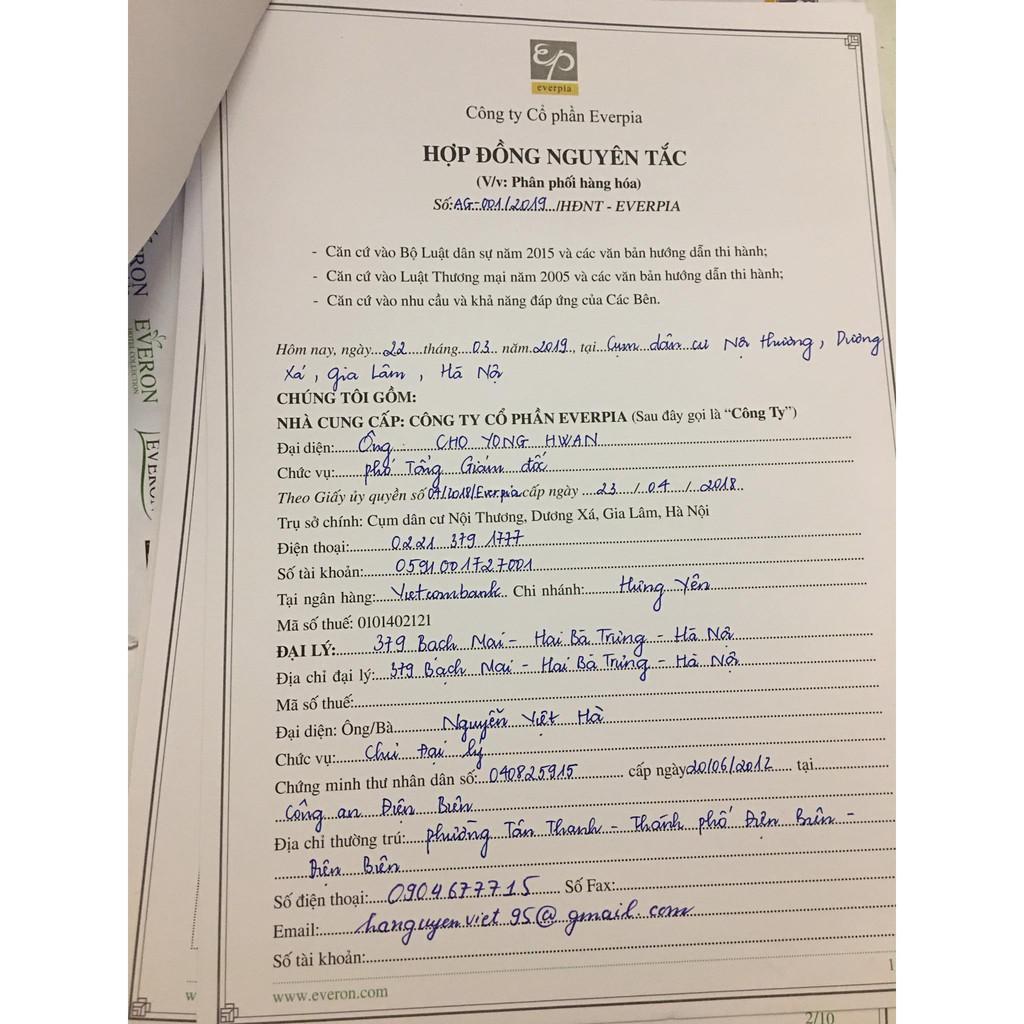 everpia
Công ty Cổ phần Everpia
HỢP ĐỒNG NGUYÊN TẮC
(V/v: Phân phối hàng hóa)
Số: AG-001/2019 /HĐNT - EVERPIA
- Căn cứ vào Bộ Luật dân sự năm 2015 và các văn bản hướng dẫn thi hành;
- Căn cứ vào Luật Thương mại năm 2005 và các văn bản hướng dẫn thi hành;
- Căn cứ vào nhu cầu và khả năng đáp ứng của Các Bên.
Hôm nay, ngày 22 tháng 03 năm 2019, tại Cụm dân cư Nội thương, Dương
Xá, Gia Lâm, Hà Nội
CHÚNG TÔI GỒM:
NHÀ CUNG CẤP: CÔNG TY CỔ PHẦN EVERPIA (Sau đây gọi là “Công Ty”)
Đại diện: Ông CHO YONG HWAN
Chức vụ: phó Tổng Giám đốc
Theo Giấy ủy quyền số 04/2018/Everpia cấp ngày 23 / 04 / 2018
Trụ sở chính: Cụm dân cư Nội Thương, Dương Xá, Gia Lâm, Hà Nội
Điện thoại: 0221 379 1777
Số tài khoản: 0591001727001
Tại ngân hàng: Vietcombank Chi nhánh: Hưng Yên
Mã số thuế: 0101402121
ĐẠI LÝ: 379 Bạch Mai - Hai Bà Trưng - Hà Nội
Địa chỉ đại lý: 379 Bạch Mai - Hai Bà Trưng - Hà Nội
Mã số thuế:
Đại diện: Ông/Bà Nguyễn Việt Hà
Chức vụ: Chủ Đại lý
Chứng minh thư nhân dân số: 040825915 cấp ngày 20/06/2012 tại
Công an Điện Biên
Địa chỉ thường trú: phường Tân Thanh - Thành phố Điện Biên -
Điện Biên
Số điện thoại: 0904677715 Số Fax:
Email: hanguyenviet95@gmail.com
Số tài khoản:
1
www.everon.com
2/10
EVERON
HOTEL COLLECTION
EVERON
RON
w